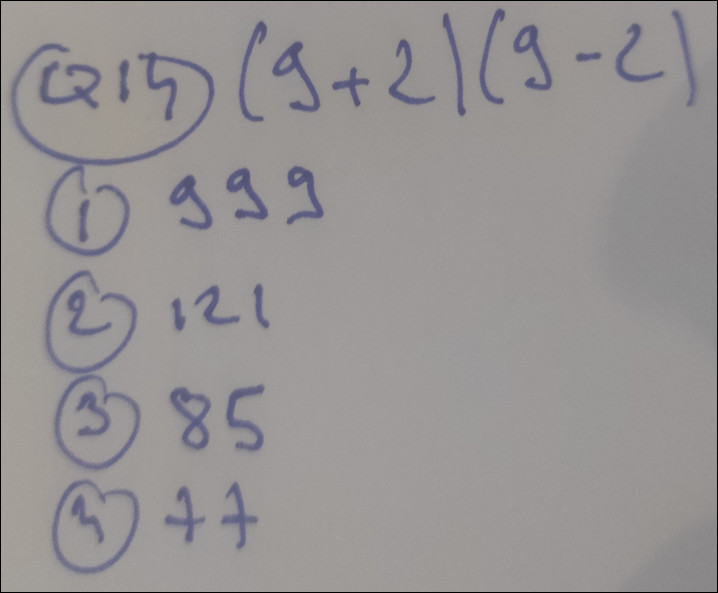 Q14 (9+2)(9-2)
1 999
2 121
3 85
4 77